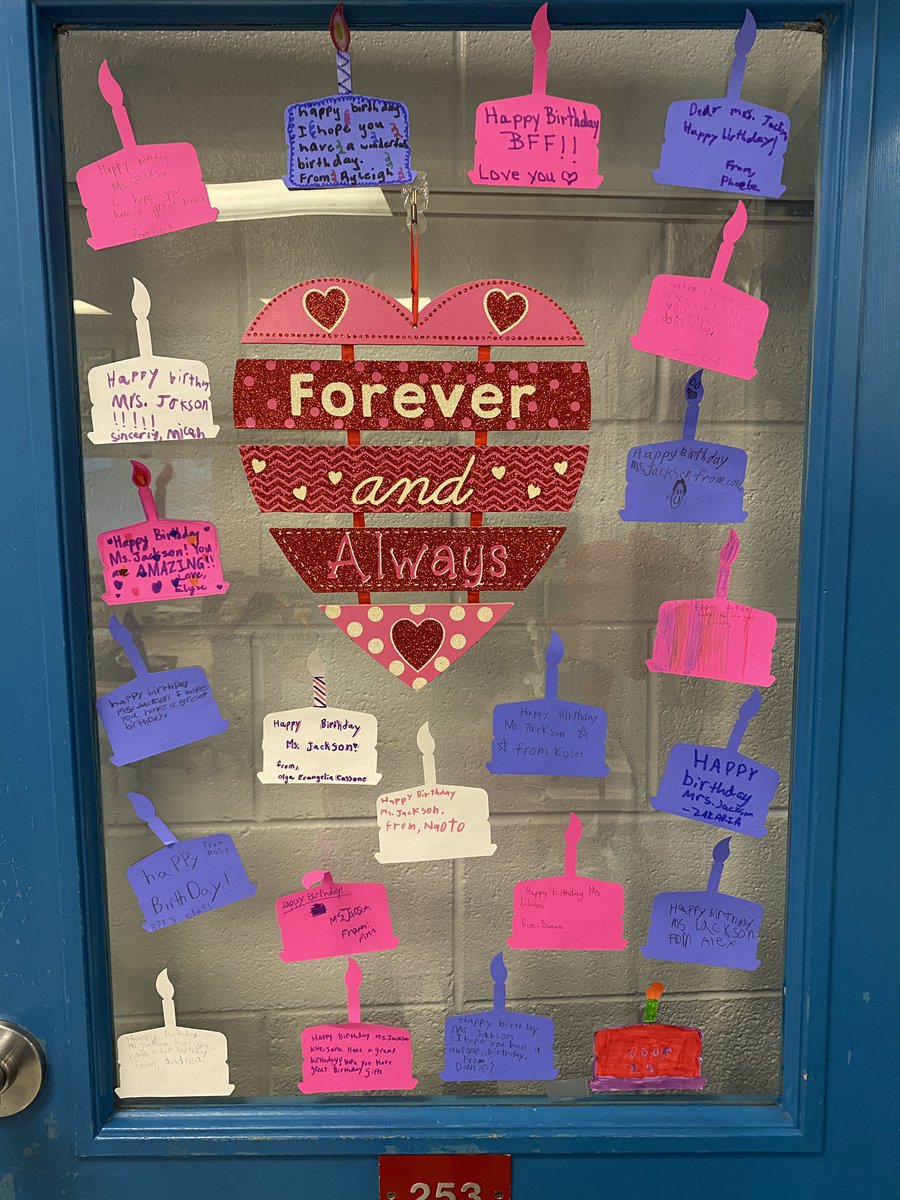 Happy birthday
Ms. Jackson
I hope you
have a great birthday
happy birthday
I hope you
have a wonderful
birthday.
From Ryleigh
Happy Birthday
BFF!!
Love you
Dear mrs. Jackson
Happy birthday!
From,
Phoebe
Forever
and
Always
Happy birthday
Mrs. Jakson
!!!!!
sincerly, Micah
Happy Birthday
ms. Jackson from,
Happy Birthday
Ms. Jackson! You
are AMAZING!!
Love,
Elyse
happy birthday
ms. Jackson I hope
you have a great
birthday.
Happy Birthday
Ms. Jackson!
from,
Olga Evangelia Kassone
Happy Birthday
Ms. Jackson
from, Kosei
Happy Birthday
Ms. Jackson.
from, Naoto
HAPPY
birthday
Mrs. Jackson
-ZAKARIA
From
Rosie
happy
BirthDay!
BFF's class
Happy Birthday!
Ms. Jakson
From:
Ann
Happy birthday Ms.
Jakson
from, Sanaa
Happy birthday
ms Jackson
From Alex
Happy Birthday
hope you
have a fun birthday
from, Andrea
Happy Birthday Ms. Jackson
Have a great
birthday! Hope you Have
great Birthday Gifts
Happy birthday
Ms. Jackson
I hope you have a
awesome birthday.
From
Daniel
253